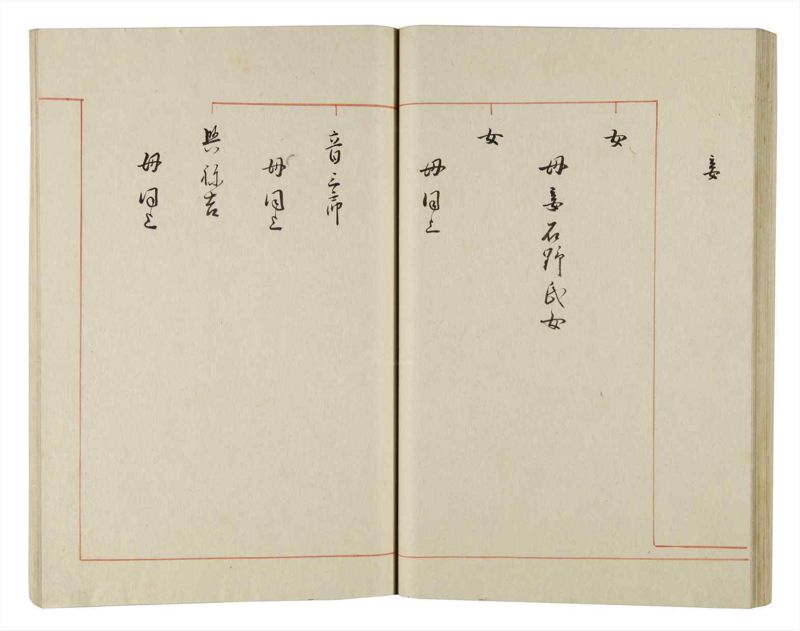 妾
女
母妾石野氏女
女
母同上
音三郎
母同上
與稱吉
母同上